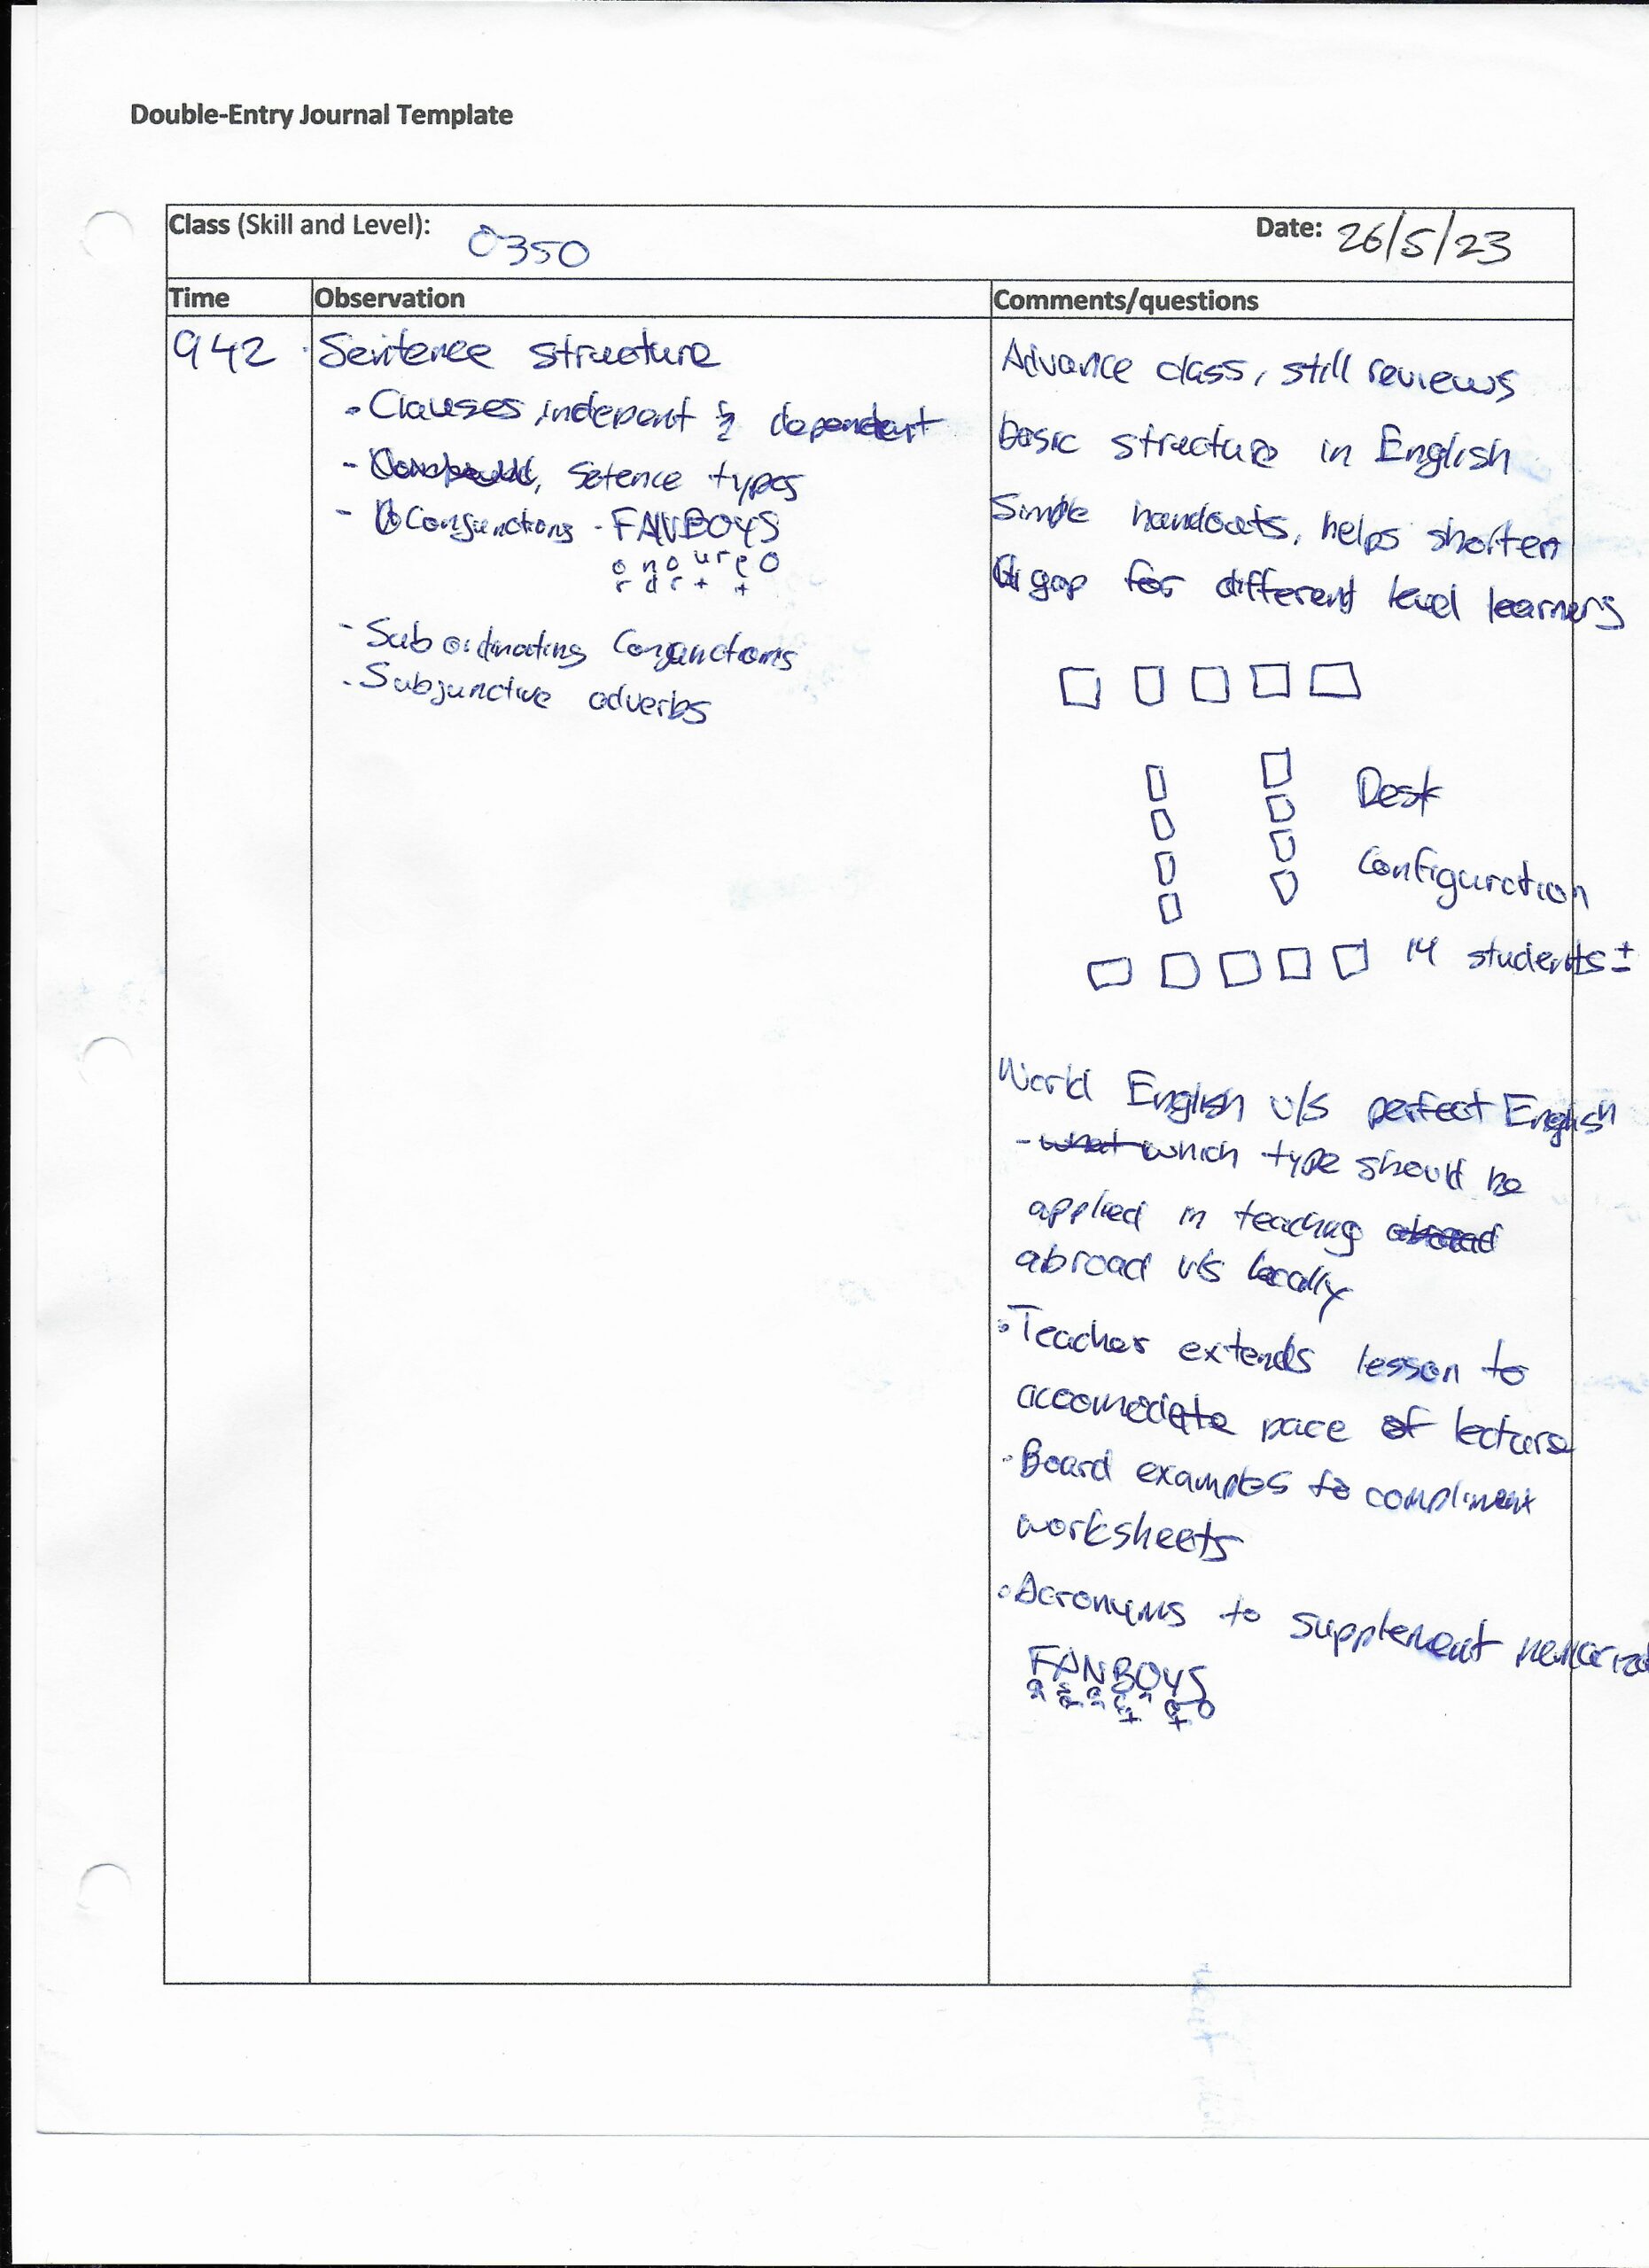 Double-Entry Journal Template
Class (Skill and Level): 0350 Date: 26/5/23
Time Observation Comments/questions
942
Sentence structure
• Clauses, indepent & dependent
- Setence types
- Conjunctions - FANBOYS
o n o u r e o
r d r t t
- Subordinating Conjunctions
- Subjunctive adverbs
Advance class, still reviews
basic structure in English
Simple handouts, helps shorten
gap for different level learners
Desk
Configuration
14 students ±
World English v/s perfect English
- what which type should be
applied in teaching abroad
abroad v/s locally
• Teacher extends lesson to
accomodate pace of lecture
• Board examples to compliment
worksheets
• Acronyms to supplement
FANBOYS